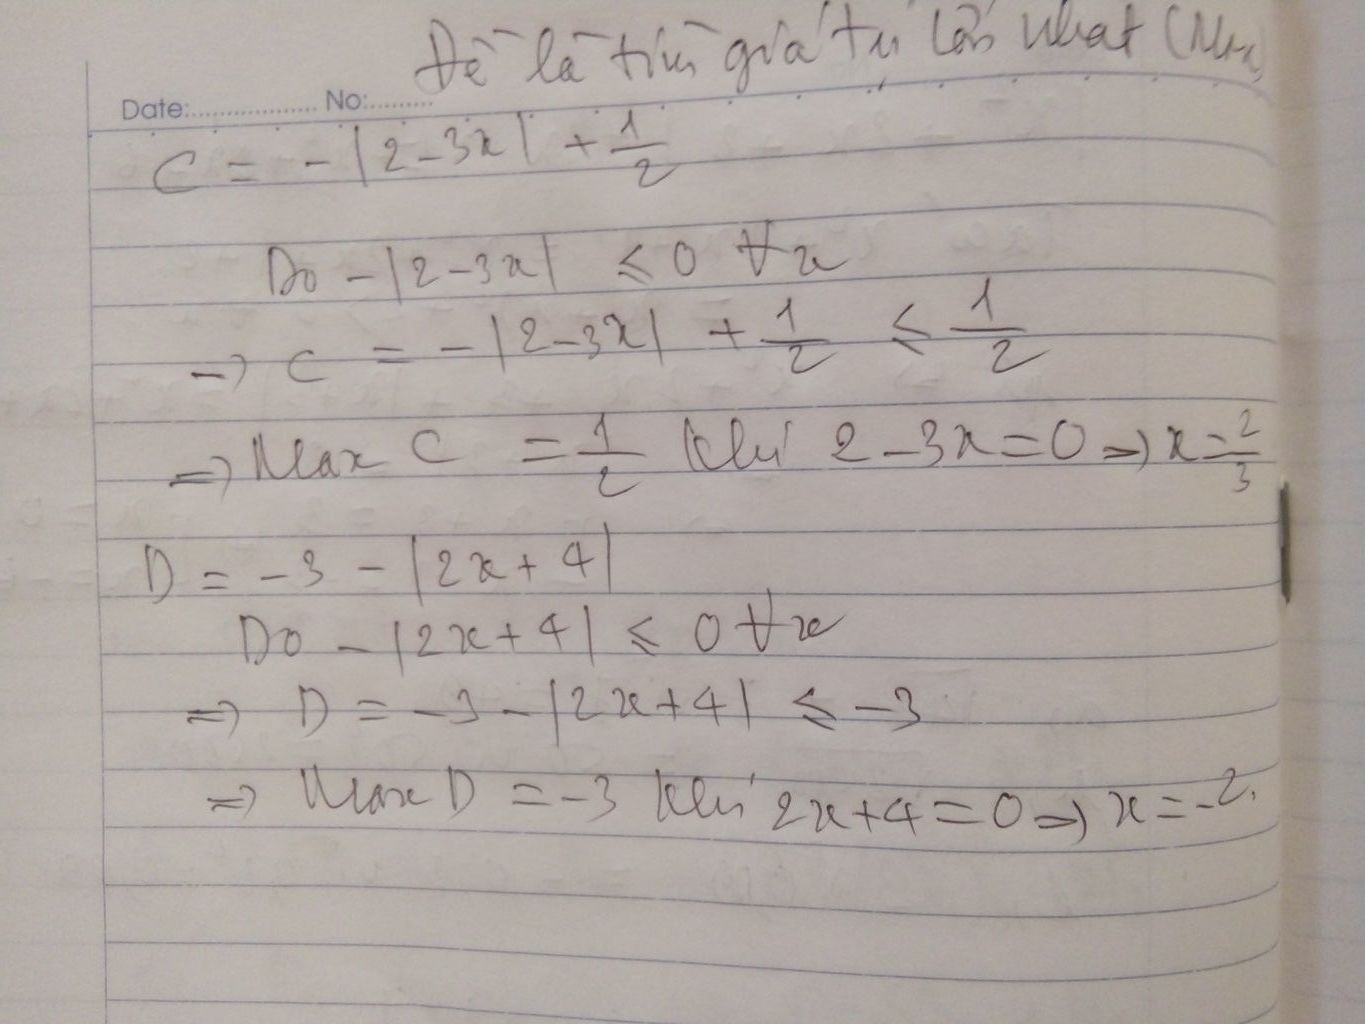 Đề là tìm giá trị lớn nhất (Max)
Date:................. No:.........
C = -|2-3x| + 1/2
Do -|2-3x| ≤ 0 ∀x
=> C = -|2-3x| + 1/2 ≤ 1/2
=> Max C = 1/2 khi 2-3x=0 => x=2/3
D = -3 - |2x+4|
Do -|2x+4| ≤ 0 ∀x
=> D = -3-|2x+4| ≤ -3
=> Max D = -3 khi 2x+4=0 => x=-2.